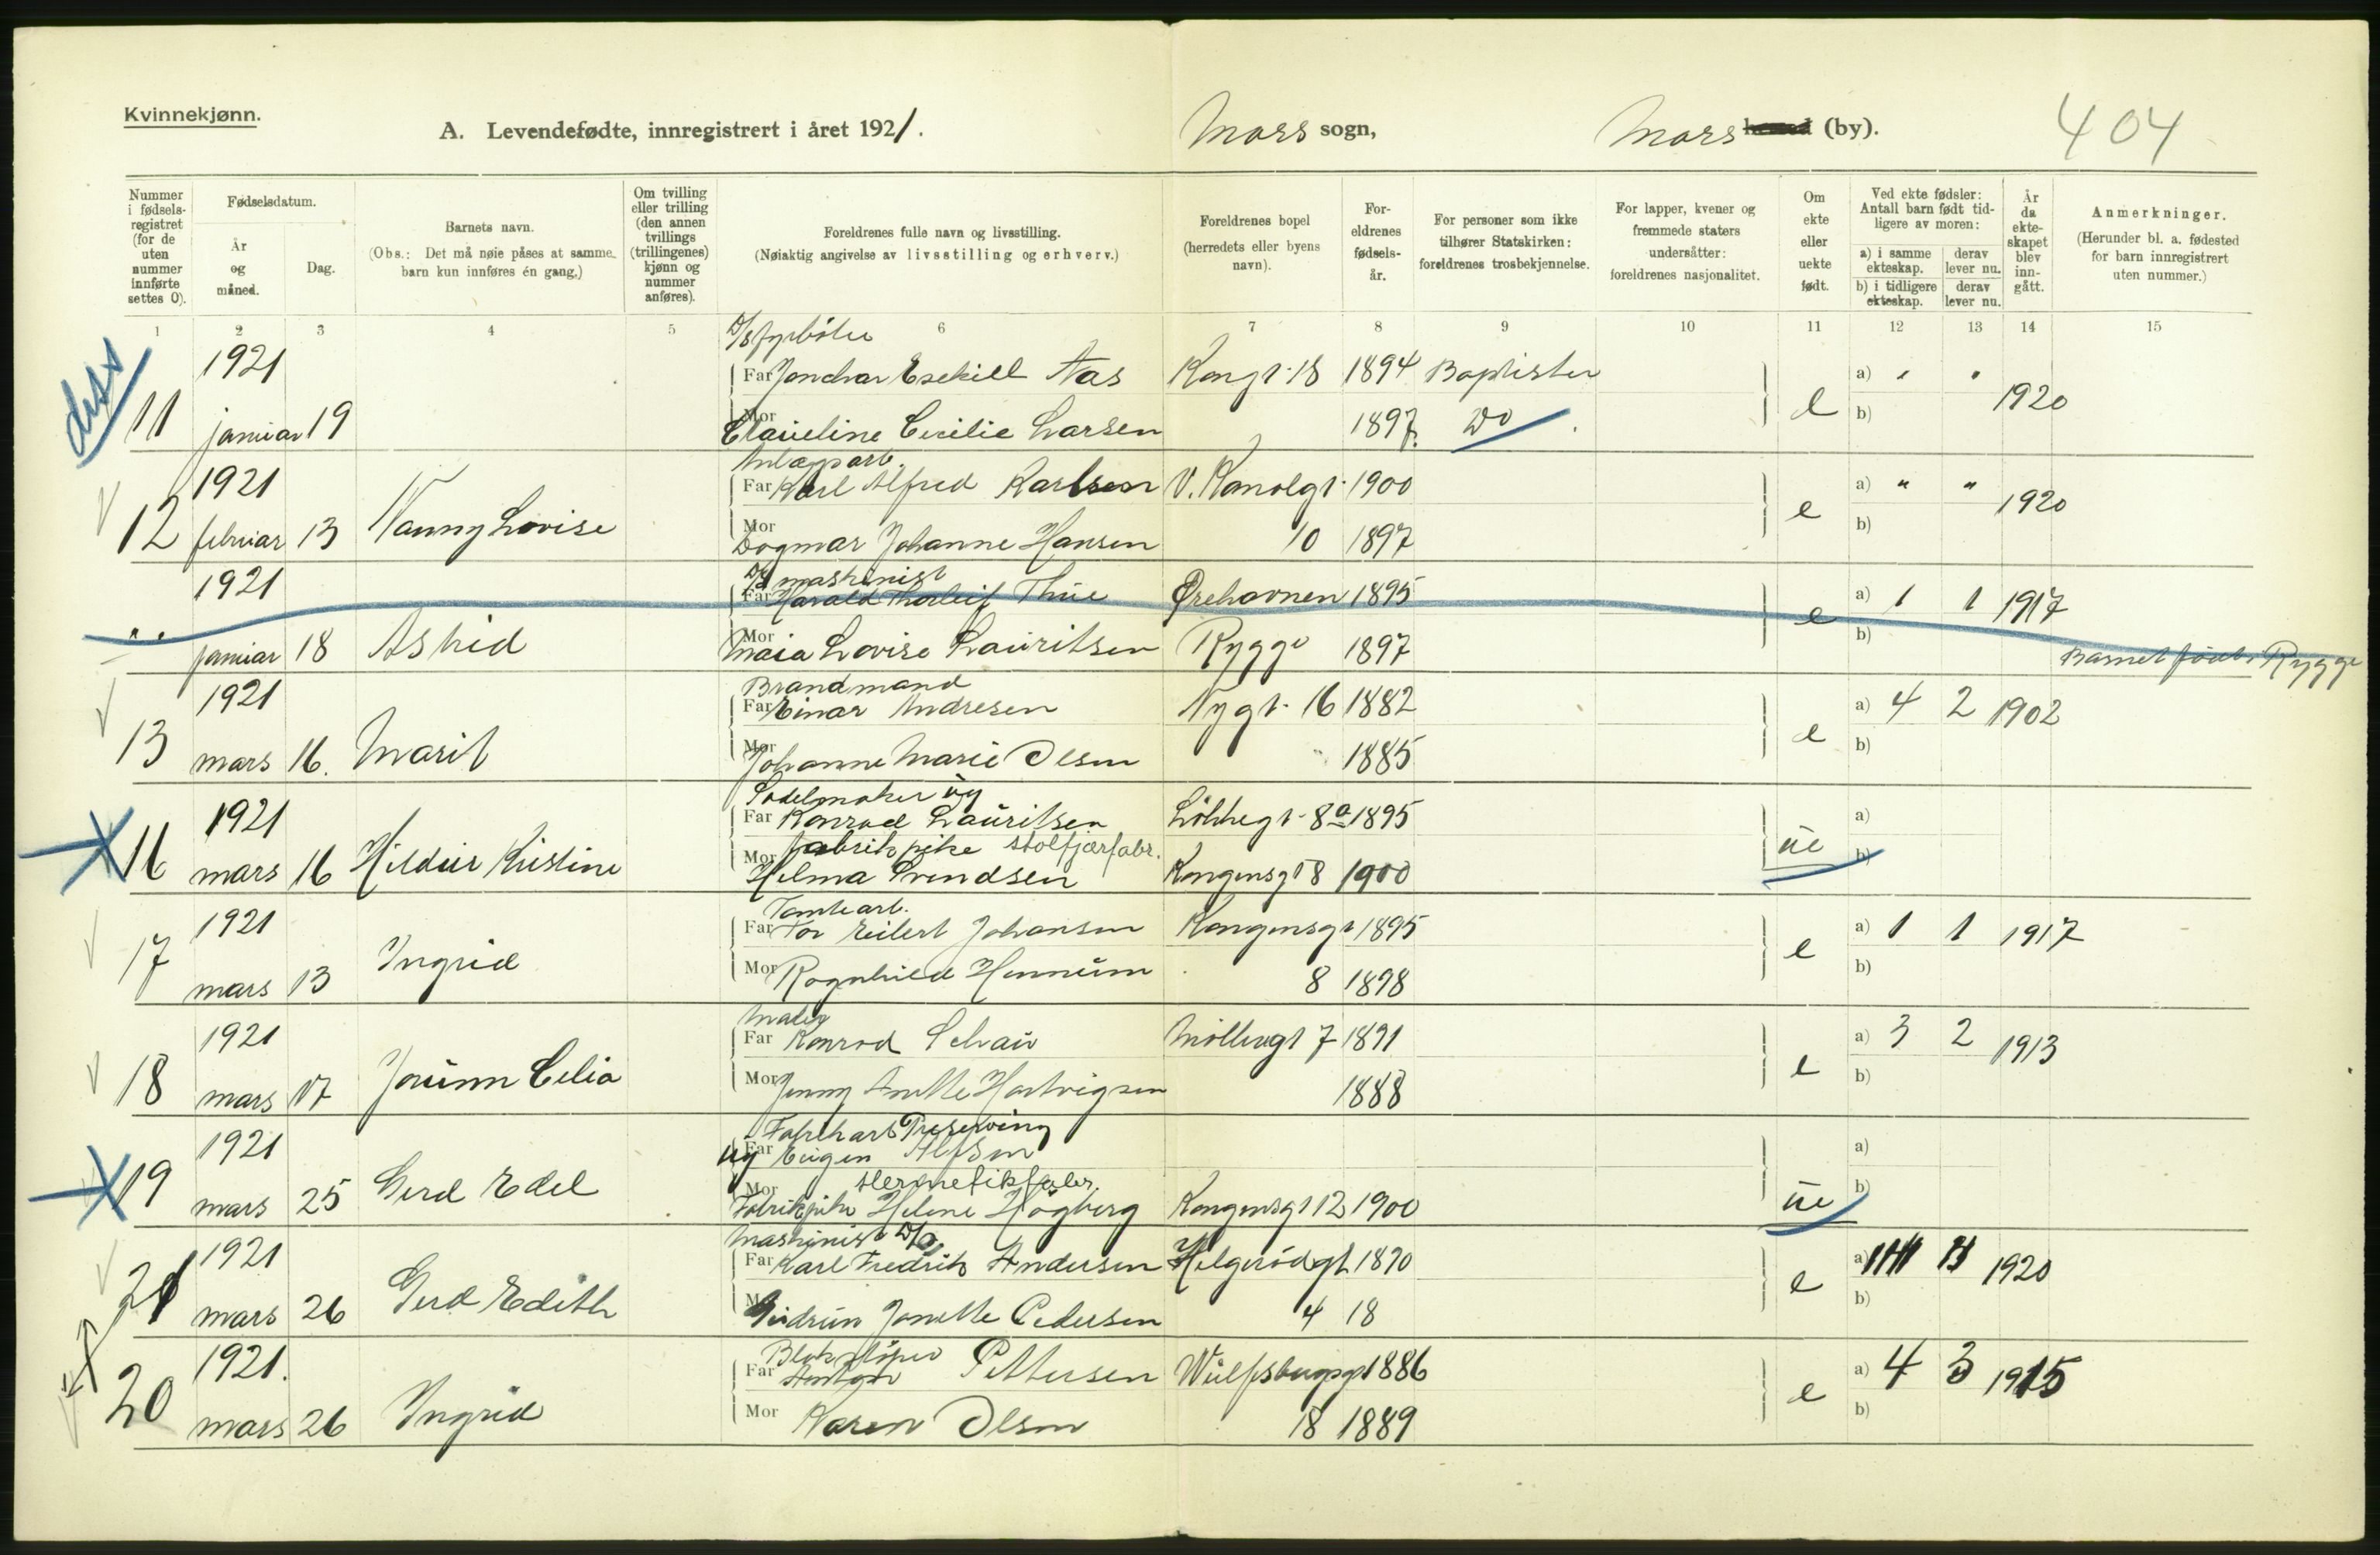 Kvinnekjønn.
A. Levendefødte, innregistrert i året 1921.
Moss sogn,
Moss herred (by).
404
Nummer i fødsels-registret (for de uten nummer innførte settes 0).
Fødselsdatum.
År og måned.
Dag.
Barnets navn.
(Obs.: Det må nøie påses at samme barn kun innføres én gang.)
Om tvilling eller trilling (den annen tvillings (trillingenes) kjønn og nummer anføres).
Foreldrenes fulle navn og livsstilling.
(Nøiaktig angivelse av livsstilling og erhverv.)
Foreldrenes bopel (herredets eller byens navn).
For-eldrenes fødsels-år.
For personer som ikke tilhører Statskirken: foreldrenes trosbekjennelse.
For lapper, kvener og fremmede staters undersåtter: foreldrenes nasjonalitet.
Om ekte eller uekte født.
Ved ekte fødsler: Antall barn født tid-ligere av moren:
a) i samme ekteskap.
derav lever nu.
b) i tidligere ekteskap.
derav lever nu.
År da ekte-skapet blev inn-gått.
Anmerkninger.
(Herunder bl. a. fødested for barn innregistrert uten nummer.)
1 2 3 4 5 6 7 8 9 10 11 12 13 14 15
diss
D/S fyrbøter
1921 Far Esekiell Aas Kongt. 18 1894 Baptister a) " "
11 januar 19 Mor Claueline Cecilie Larsen 1897 Do e b) 1920
Anlægsarb.
1921 Far Karl Alfred Karlsen V. Kanalgt. 1900 a) " "
12 februar 13 Nanny Lovise Mor Dagmar Johanne Hansen 10 1897 e b) 1920
D/S maskinist
1921 Far Harald Thorleif Thue Ørehavnen 1895 a) 1 1 1917
" januar 18 Astrid Mor Maia Lovise Lauritsen Rygge 1897 e b) Barnet født i Rygge
Brandmand
1921 Far Einar Andresen Nygt. 16 1882 a) 4 2 1902
13 mars 16. Marit Mor Johanne Marie Olsen 1885 e b)
Sadelmaker ug
1921 Far Konrad Lauritsen 8a 1895 a)
fabrikpike stolfjærfabr.
16 mars 16 Hildur Kristine Mor Helma Svendsen Kongensgt 8 1900 ue b)
Tomtearb.
1921 Far Tor Eilert Johansen Kongensgt 1895 a) 1 1 1917
17 mars 13 Ingrid Mor Ragnhild Hennum 8 1898 e b)
Maler
1921 Far Konrad Schau Møllergt 7 1891 a) 3 2 1913
18 mars 17 Jorunn Celia Mor Jenny Anette Hartvigsen 1888 e b)
Fabrikarb Preserving
1921 ug Far Eugen Alfsen a)
Hermetikfabr.
19 mars 25 Gerd Edel Mor Fabrikpike Helene Högberg Kongensgt 12 1900 ue b)
Maskinist D/S
1921 Far Karl Fredrik Andersen Helgerødgt 1890 a) 1920
21 mars 26 Gerd Edith Mor Gudrun Janette Pedersen 4 18 e b)
1921. Far Anton Pettersen Wulfsbergsgt 1886 a) 4 3 1915
20 mars 26 Ingrid Mor Karen Olsen 18 1889 e b)